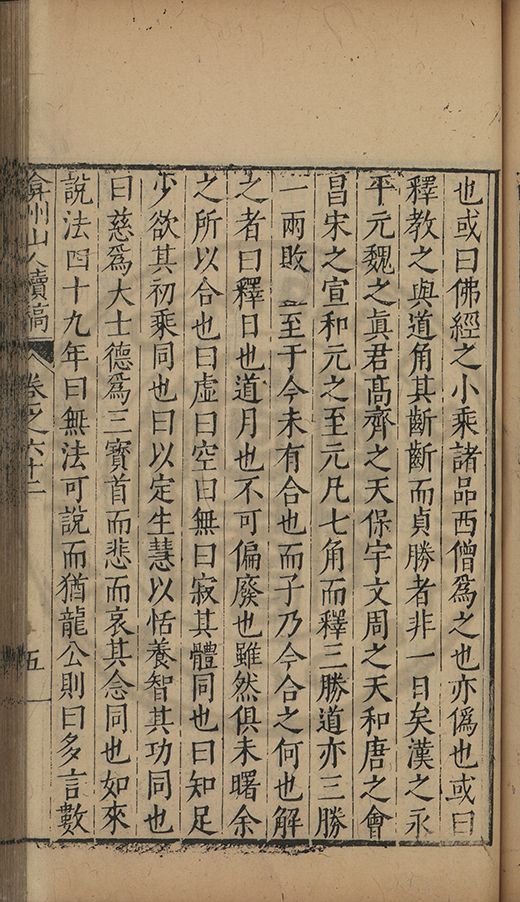 也或曰佛經之小乘諸品西僧爲之也亦僞也或曰
釋教之與道角其齗齗而貞勝者非一日矣漢之永
平元魏之眞君髙齊之天保宇文周之天和唐之會
昌宋之宣和元之至元凡七角而釋三勝道亦三勝
一兩敗 至于今未有合也而子乃今合之何也解
之者曰釋日也道月也不可偏廢也雖然俱未曙余
之所以合也曰虛曰空曰無曰寂其體同也曰知足
少欲其初乘同也曰以定生慧以恬養智其功同也
曰慈爲大士德爲三寶首而悲而哀其念同也如來
說法四十九年曰無法可說而猶龍公則曰多言數
弇州山人續稿 卷之六十二 五